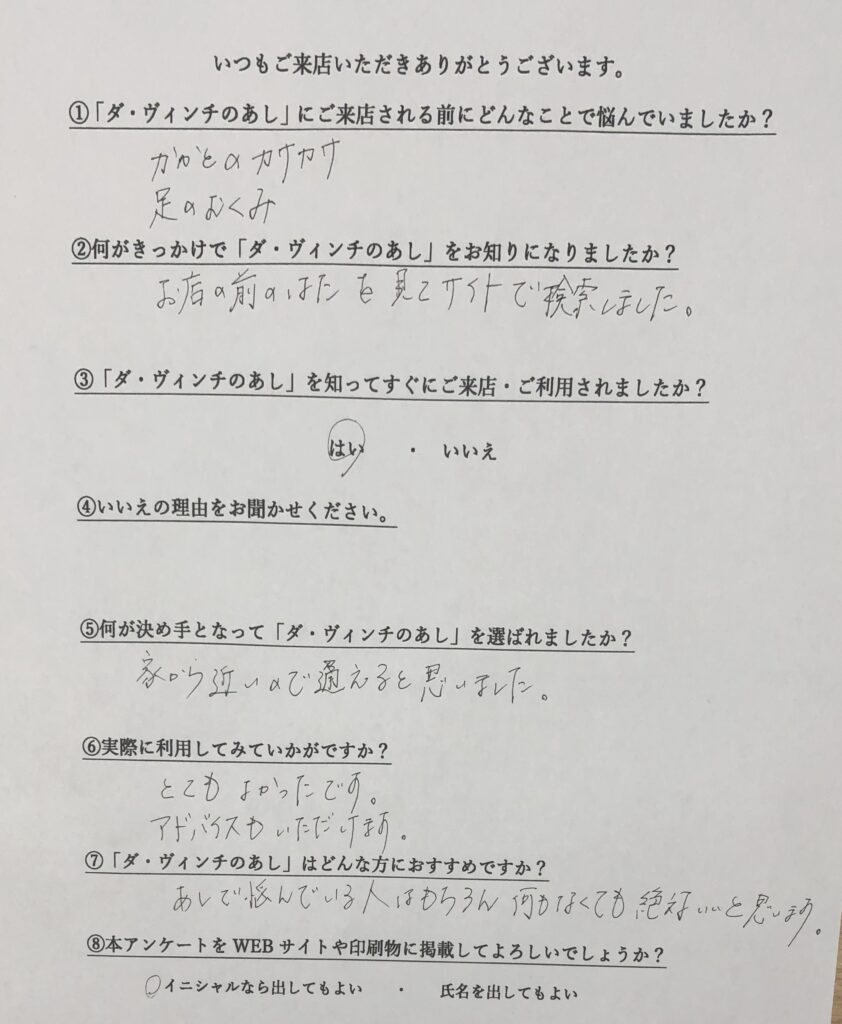 いつもご来店いただきありがとうございます。
①「ダ・ヴィンチのあし」にご来店される前にどんなことで悩んでいましたか？
かかとのカサカサ
足のむくみ
②何がきっかけで「ダ・ヴィンチのあし」をお知りになりましたか？
お店の前のはたを見てサイトで検索しました。
③「ダ・ヴィンチのあし」を知ってすぐにご来店・ご利用されましたか？
はい ・ いいえ
④いいえの理由をお聞かせください。
⑤何が決め手となって「ダ・ヴィンチのあし」を選ばれましたか？
家から近いので通えると思いました。
⑥実際に利用してみていかがですか？
とてもよかったです。
アドバイスもいただけます。
⑦「ダ・ヴィンチのあし」はどんな方におすすめですか？
あしで悩んでいる人はもちろん何もなくても絶対いいと思います。
⑧本アンケートをWEBサイトや印刷物に掲載してよろしいでしょうか？
イニシャルなら出してもよい ・ 氏名を出してもよい